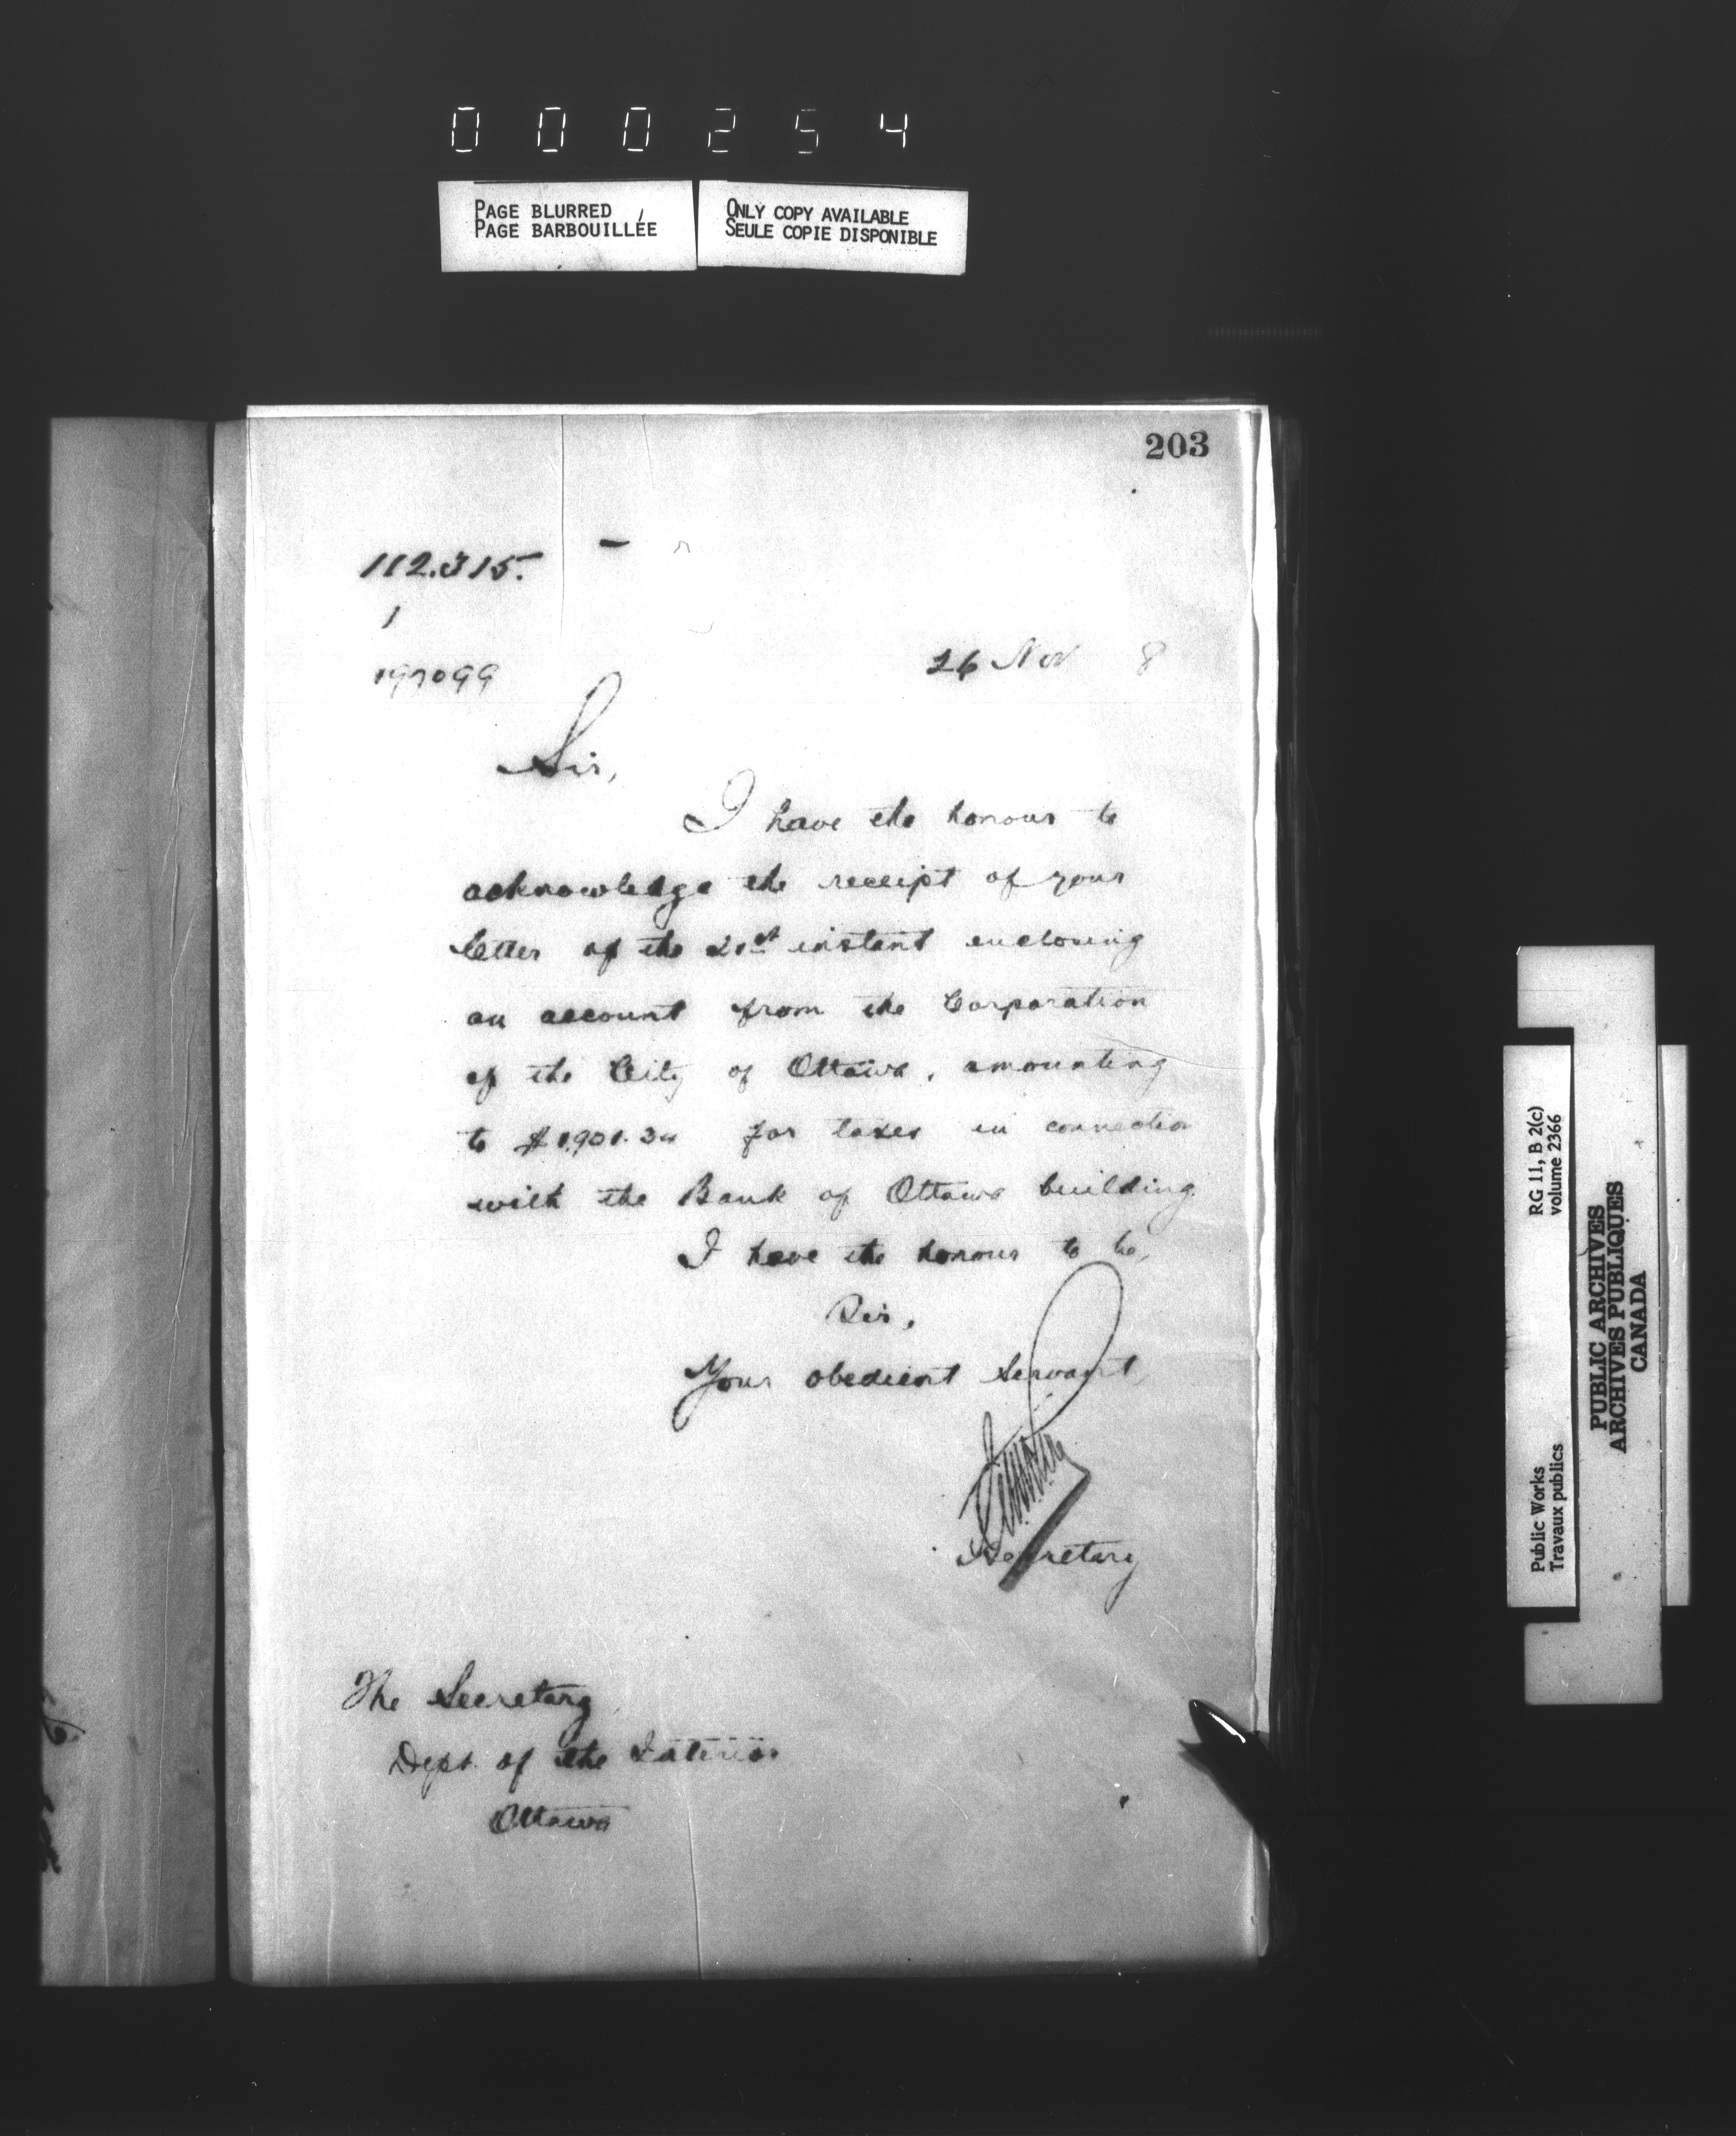 000254
PAGE BLURRED
PAGE BARBOUILLÉE
ONLY COPY AVAILABLE
SEULE COPIE DISPONIBLE
203
112.315.
1
197099
26 Nov 8
Sir,
I have the honour to
acknowledge the receipt of your
letter of the 21st instant enclosing
an account from the Corporation
of the City of Ottawa, amounting
to for taxes in connection
with the Bank of Ottawa building
I have the honour to be,
Sir,
Your obedient Servant,
Secretary
The Secretary
Dept. of the Interior
Ottawa
RG 11, B 2(c)
volume 2366
Public Works
Travaux publics
PUBLIC ARCHIVES
ARCHIVES PUBLIQUES
CANADA